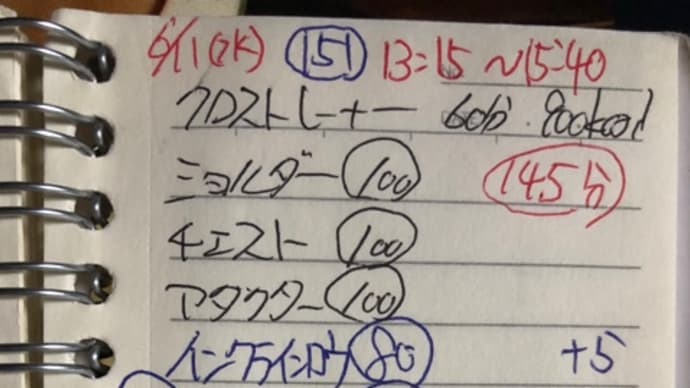 6/1(水) 151 13:15 ~15:40
クロストレーナー 60分・800kcal
ショルダー 100 145分
チェスト 100
アダクター 100
インクラインロウ 80 +5